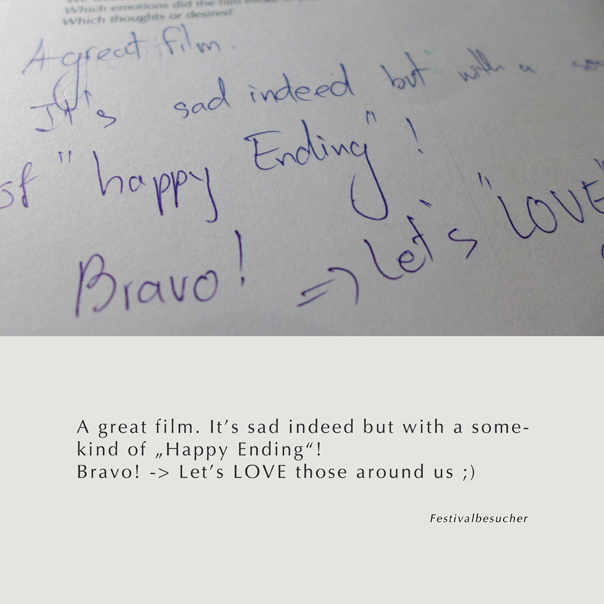 Which emotions did the film evoke
Which thoughts or desires?
A great film.
It's sad indeed but with a so
of "happy Ending"!
Bravo! => Let's "LOVE"
A great film. It’s sad indeed but with a some-
kind of „Happy Ending“!
Bravo! -> Let’s LOVE those around us ;)
Festivalbesucher